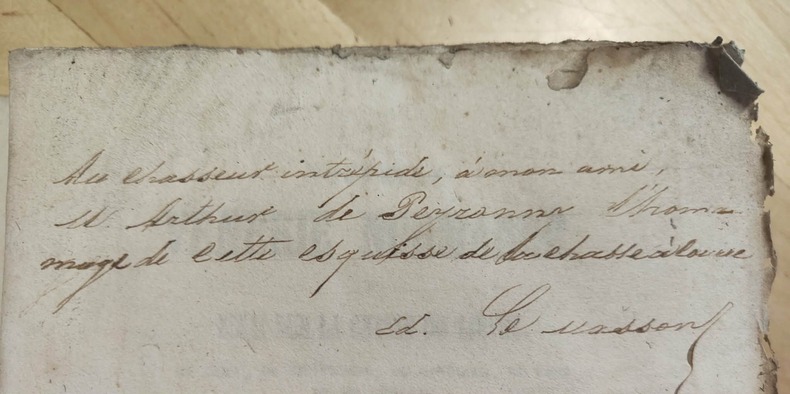 Au chasseur intrépide, à mon ami,
M. Arthur de l'hom-
mage de cette esquisse de la chasse à courre
Ed. Le Masson